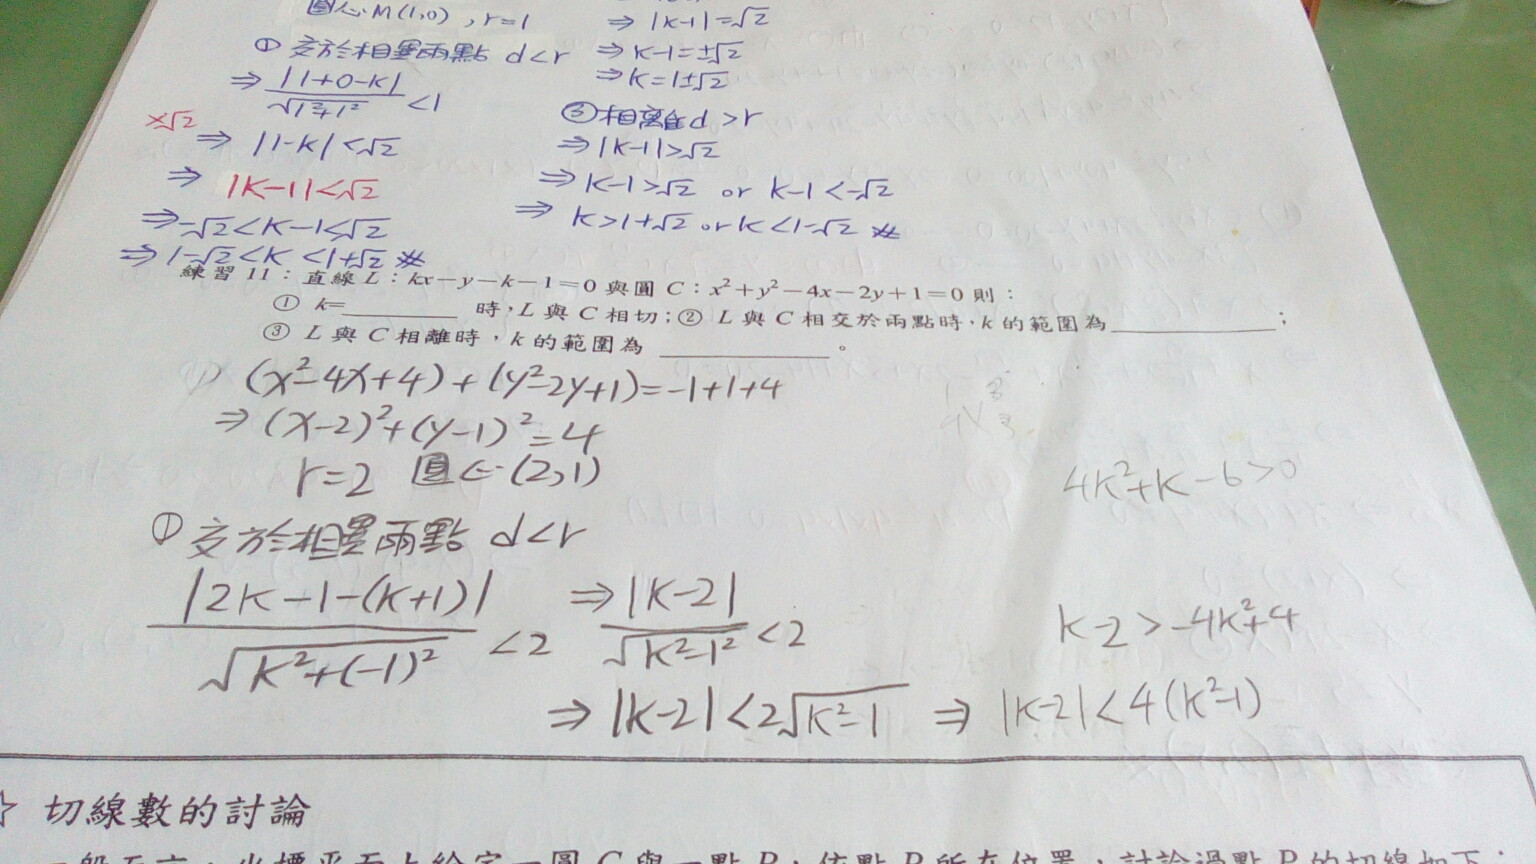 圓心M(1,0), r=1
① 交於相異兩點 d<r
⇒ |1+0-k|/√1²+1² <1
×√2
⇒ |1-k|<√2
⇒ |k-1|<√2
⇒-√2<k-1<√2
⇒ 1-√2<k<1+√2 #
⇒ |k-1|=√2
⇒ k-1=±√2
⇒k=1±√2
③相離 d>r
⇒|k-1|>√2
⇒k-1>√2 or k-1<-√2
⇒ k>1+√2 or k<1-√2 #
練習 11：直線 L：kx－y－k－1＝0 與圓 C：x²＋y²－4x－2y＋1＝0 則：
① k=________ 時，L 與 C 相切；② L 與 C 相交於兩點時，k 的範圍為____________；
③ L 與 C 相離時，k 的範圍為 ____________。
(x²-4x+4)+(y²-2y+1)=-1+1+4
⇒(x-2)²+(y-1)²=4
r=2 圓心(2,1)
① 交於相異兩點 d<r
|2k-1-(k+1)|/√k²+(-1)² <2 ⇒|k-2|/√k²-1² <2
⇒|k-2|<2√k²-1 ⇒ |k-2|<4(k²-1)
4k²+k-6>0
k-2>-4k²+4
切線數的討論